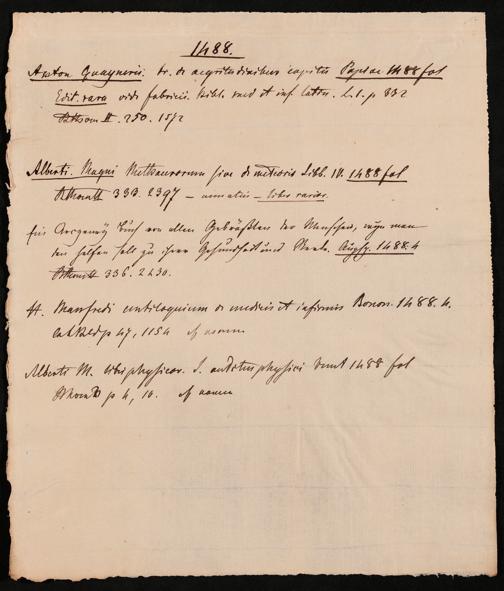 1488.
Anton Guaynerii. tr. de aegritudinibus capitis Papiae 1488 fol
Edit. rara vide fabricii. bibl. med et inf latin. L. 1. p 332
II. 250. 1572
Alberti. Magni Metheororum sive de meteoris Libb. IV. 1488 fol
333. 2397 – – liber rarior.
Ein Arczeney Buch von allen Gebräsßten der Menschen, man
den helfen soll zu ihrer Gesundheit und Augsp. 1488. 4
336. 2230.
H. Manfredi centiloquium de medicis et infirmis Bonon. 1488. 4.
p 47, 1154
Alberti M. libri physicor. S. auditus physici Venet 1488 fol
p 4, 10.